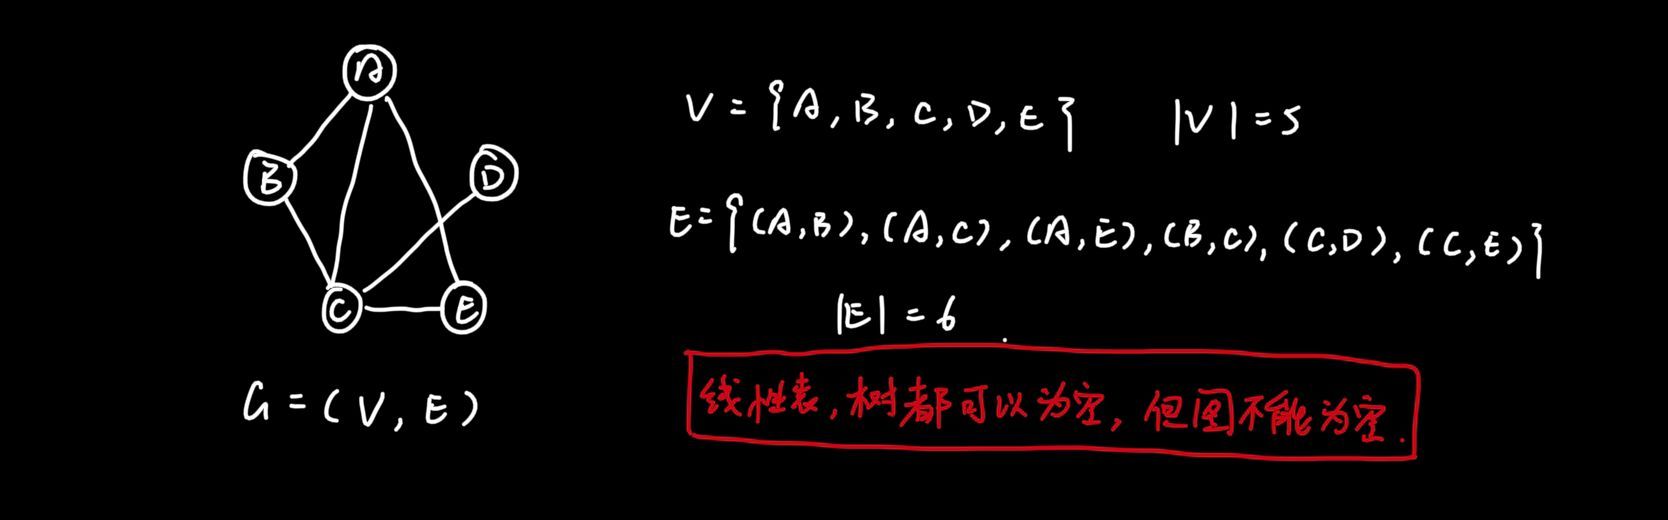 A
B
D
C
E
G=(V,E)
V={A,B,C,D,E} |V|=5
E={(A,B),(A,C),(A,E),(B,C),(C,D),(C,E)}
|E|=6
线性表,树都可以为空,但图不能为空.